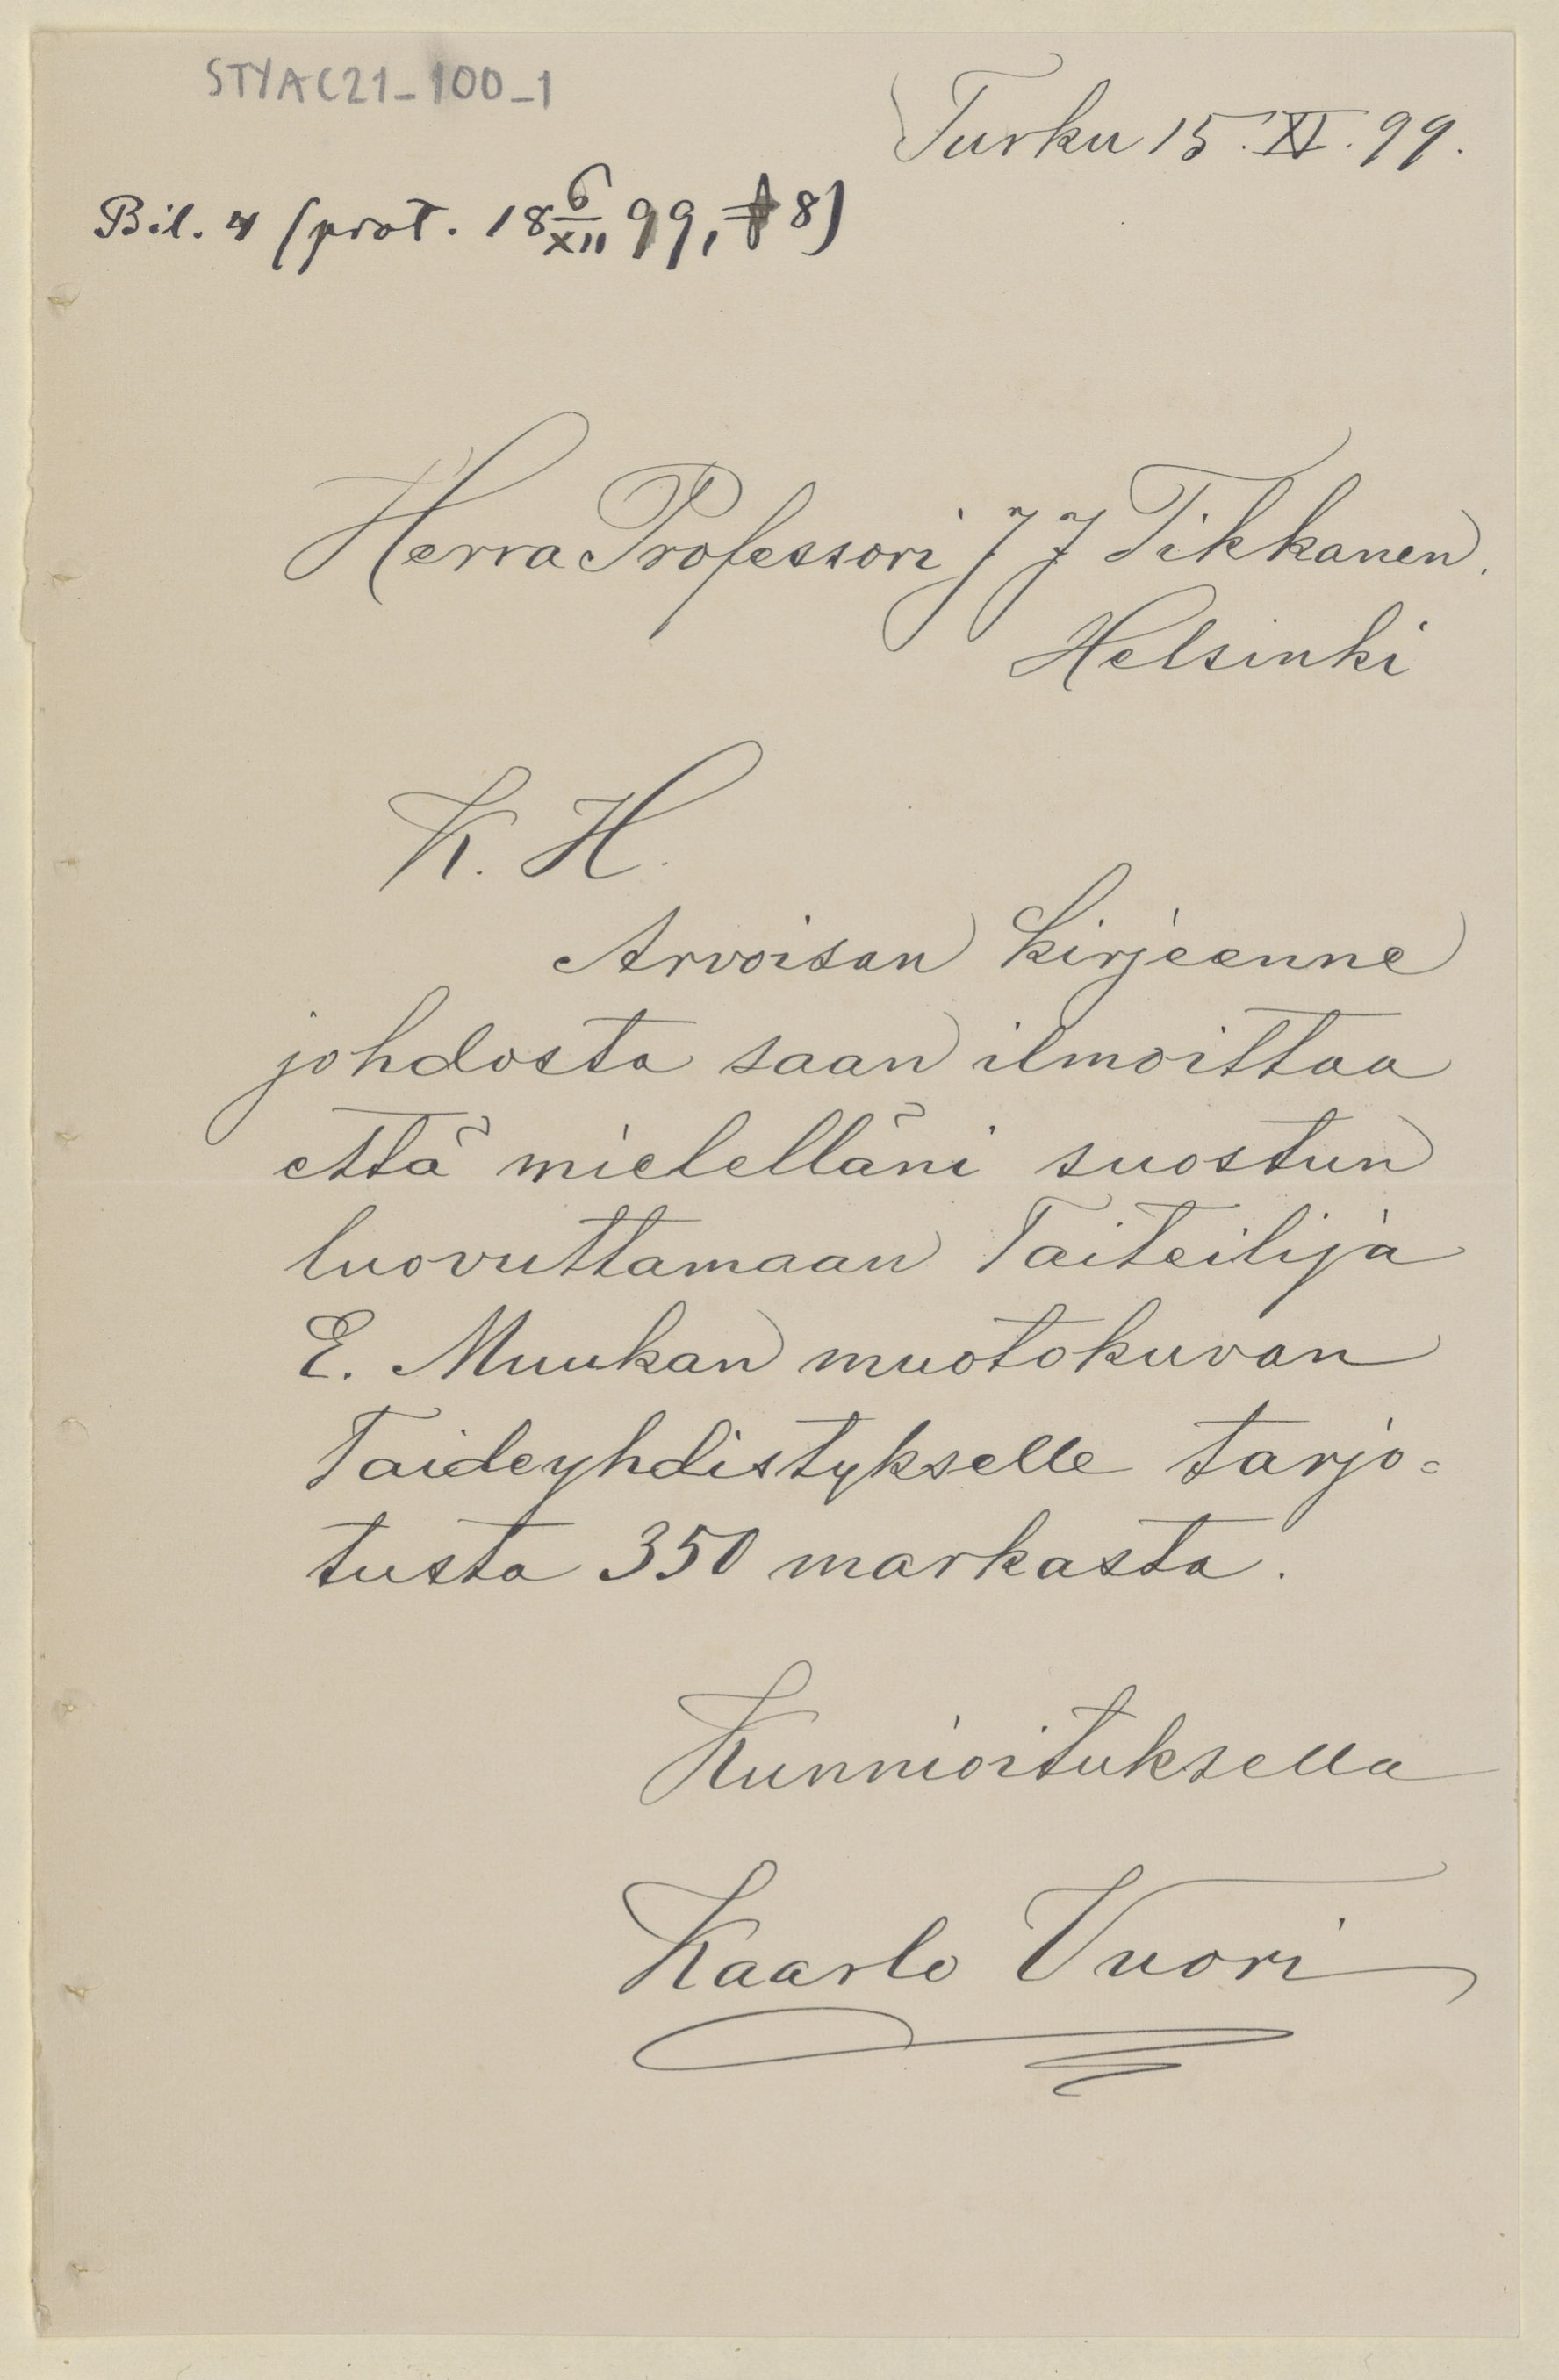 STYAC21_100_1
Turku 15. XI. 99.
Bil. 4 (prot. 18 6/XII 99, § 8)
Herra Professori J J Tikkanen.
Helsinki
K. H.
Arvoisan kirjeenne
johdosta saan ilmoittaa
että mielelläni suostun
luovuttamaan Taiteilija
E. Muukan muotokuvan
Taideyhdistykselle tarjo=
tusta 350 markasta.
Kunnioituksella
Kaarlo Vuori